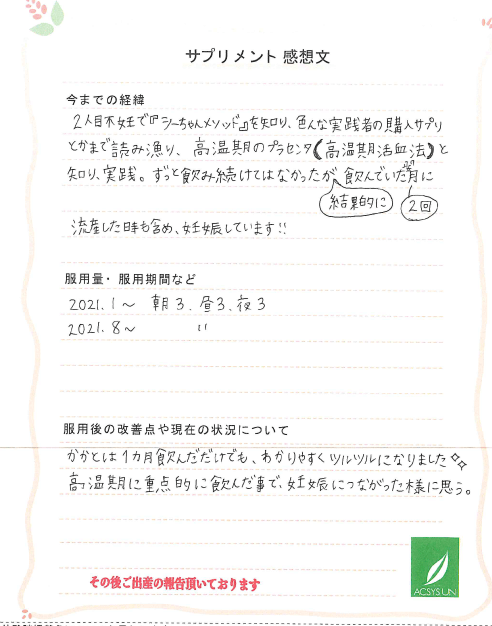 サプリメント 感想文
今までの経緯
2人目不妊で『シーちゃんメソッド』を知り、色んな実践者の購入サプリ
とかまで読み漁り、高温期のプラセンタ(高温期活血法)と
知り、実践。ずっと飲み続けてはなかったが飲んでいた月に
結果的に 2回
流産した時も含め、妊娠しています!!
服用量・服用期間など
2021.1～ 朝3、昼3、夜3
2021.8～ 〃
服用後の改善点や現在の状況について
かかとは1カ月飲んだだけでも、わかりやすくツルツルになりました
高温期に重点的に飲んだ事で、妊娠につながった様に思う。
その後ご出産の報告頂いております
ACSYS UN